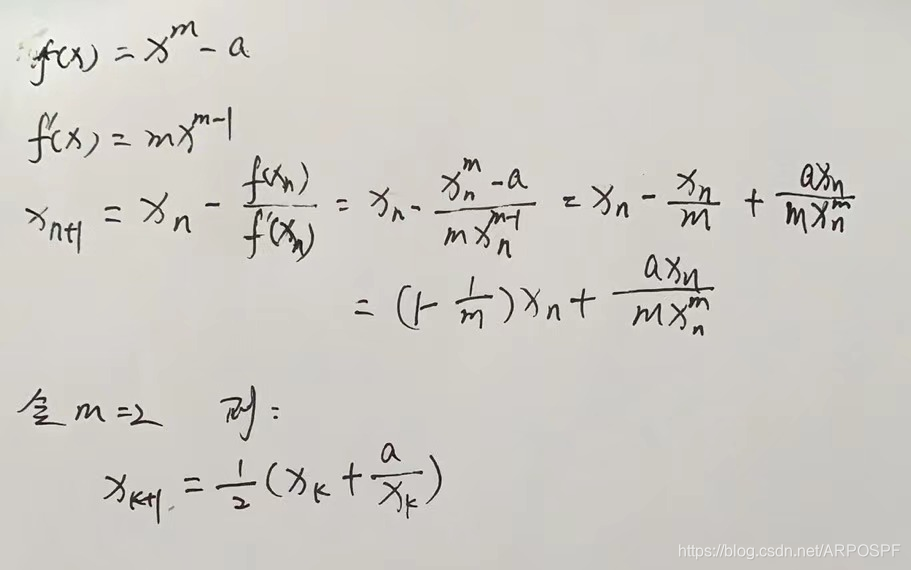 f(x) = x^m - a
f'(x) = mx^{m-1}
x_{n+1} = x_n - \frac{f(x_n)}{f'(x_n)} = x_n - \frac{x_n^m - a}{m x_n^{m-1}} = x_n - \frac{x_n}{m} + \frac{a x_n}{m x_n^m}
= (1 - \frac{1}{m}) x_n + \frac{a x_n}{m x_n^m}
令 m = 2 则:
x_{k+1} = \frac{1}{2} (x_k + \frac{a}{x_k})
https://blog.csdn.net/ARPOSPF